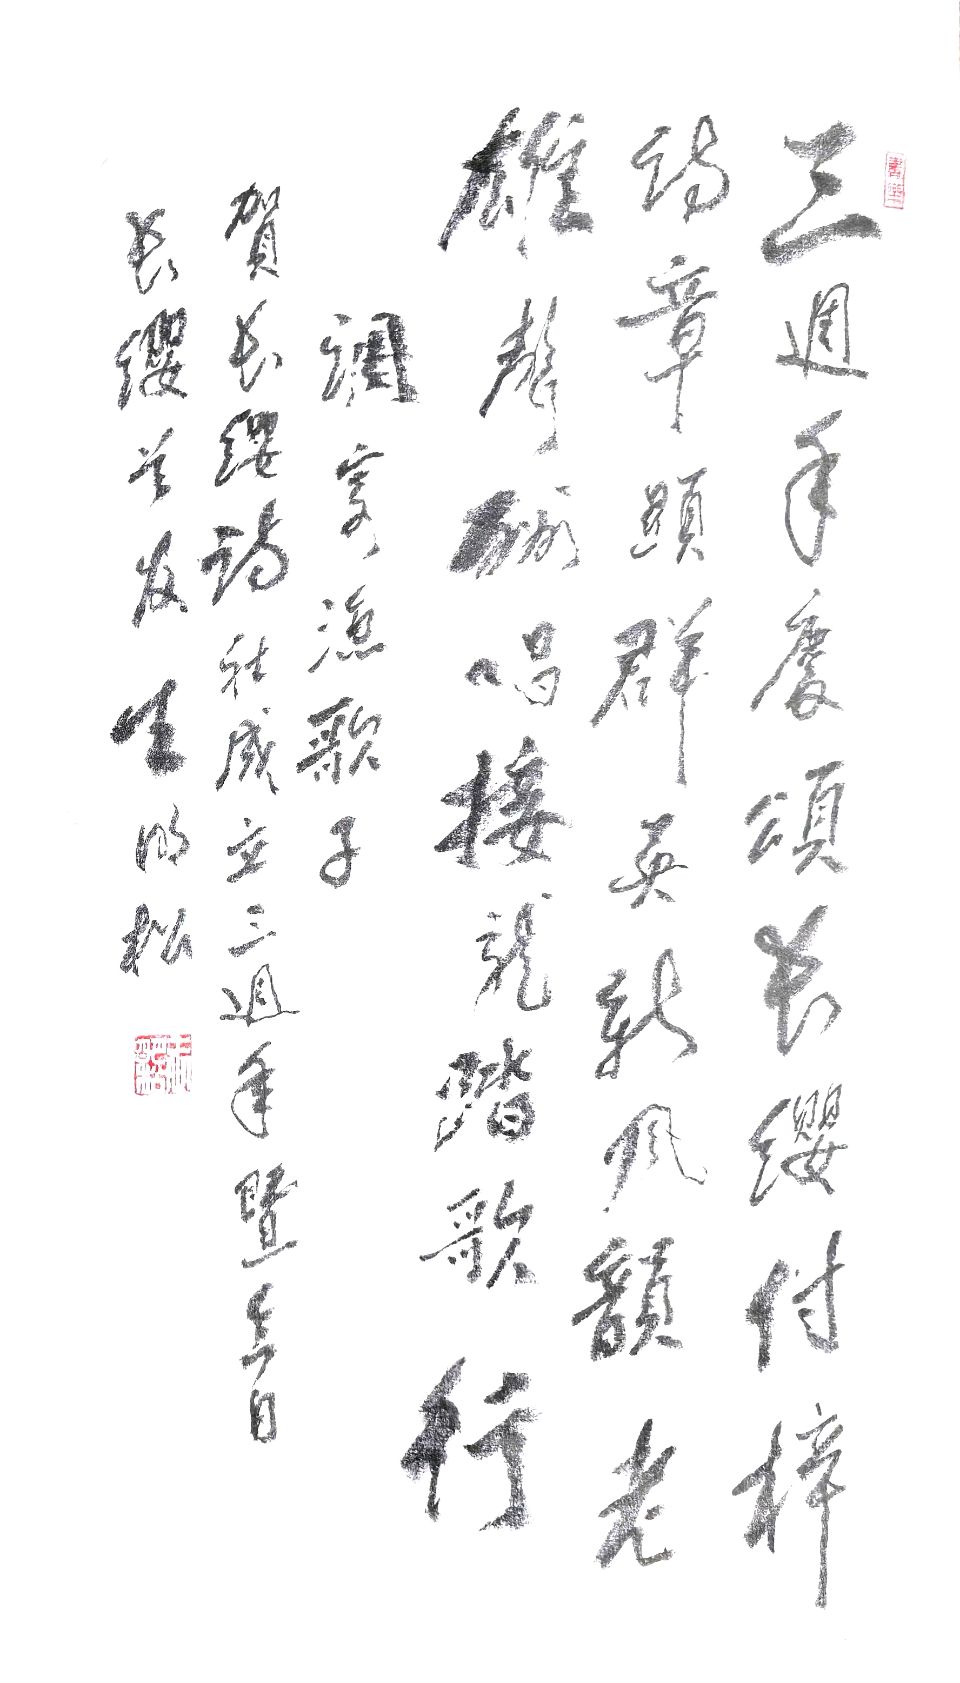 三週年慶頌長纓付梓
詩章顯群英新風韻老
雄聲酬唱接龍踏歌行
調寄漁歌子
賀長纓詩社成立三週年暨
長纓首发 明松